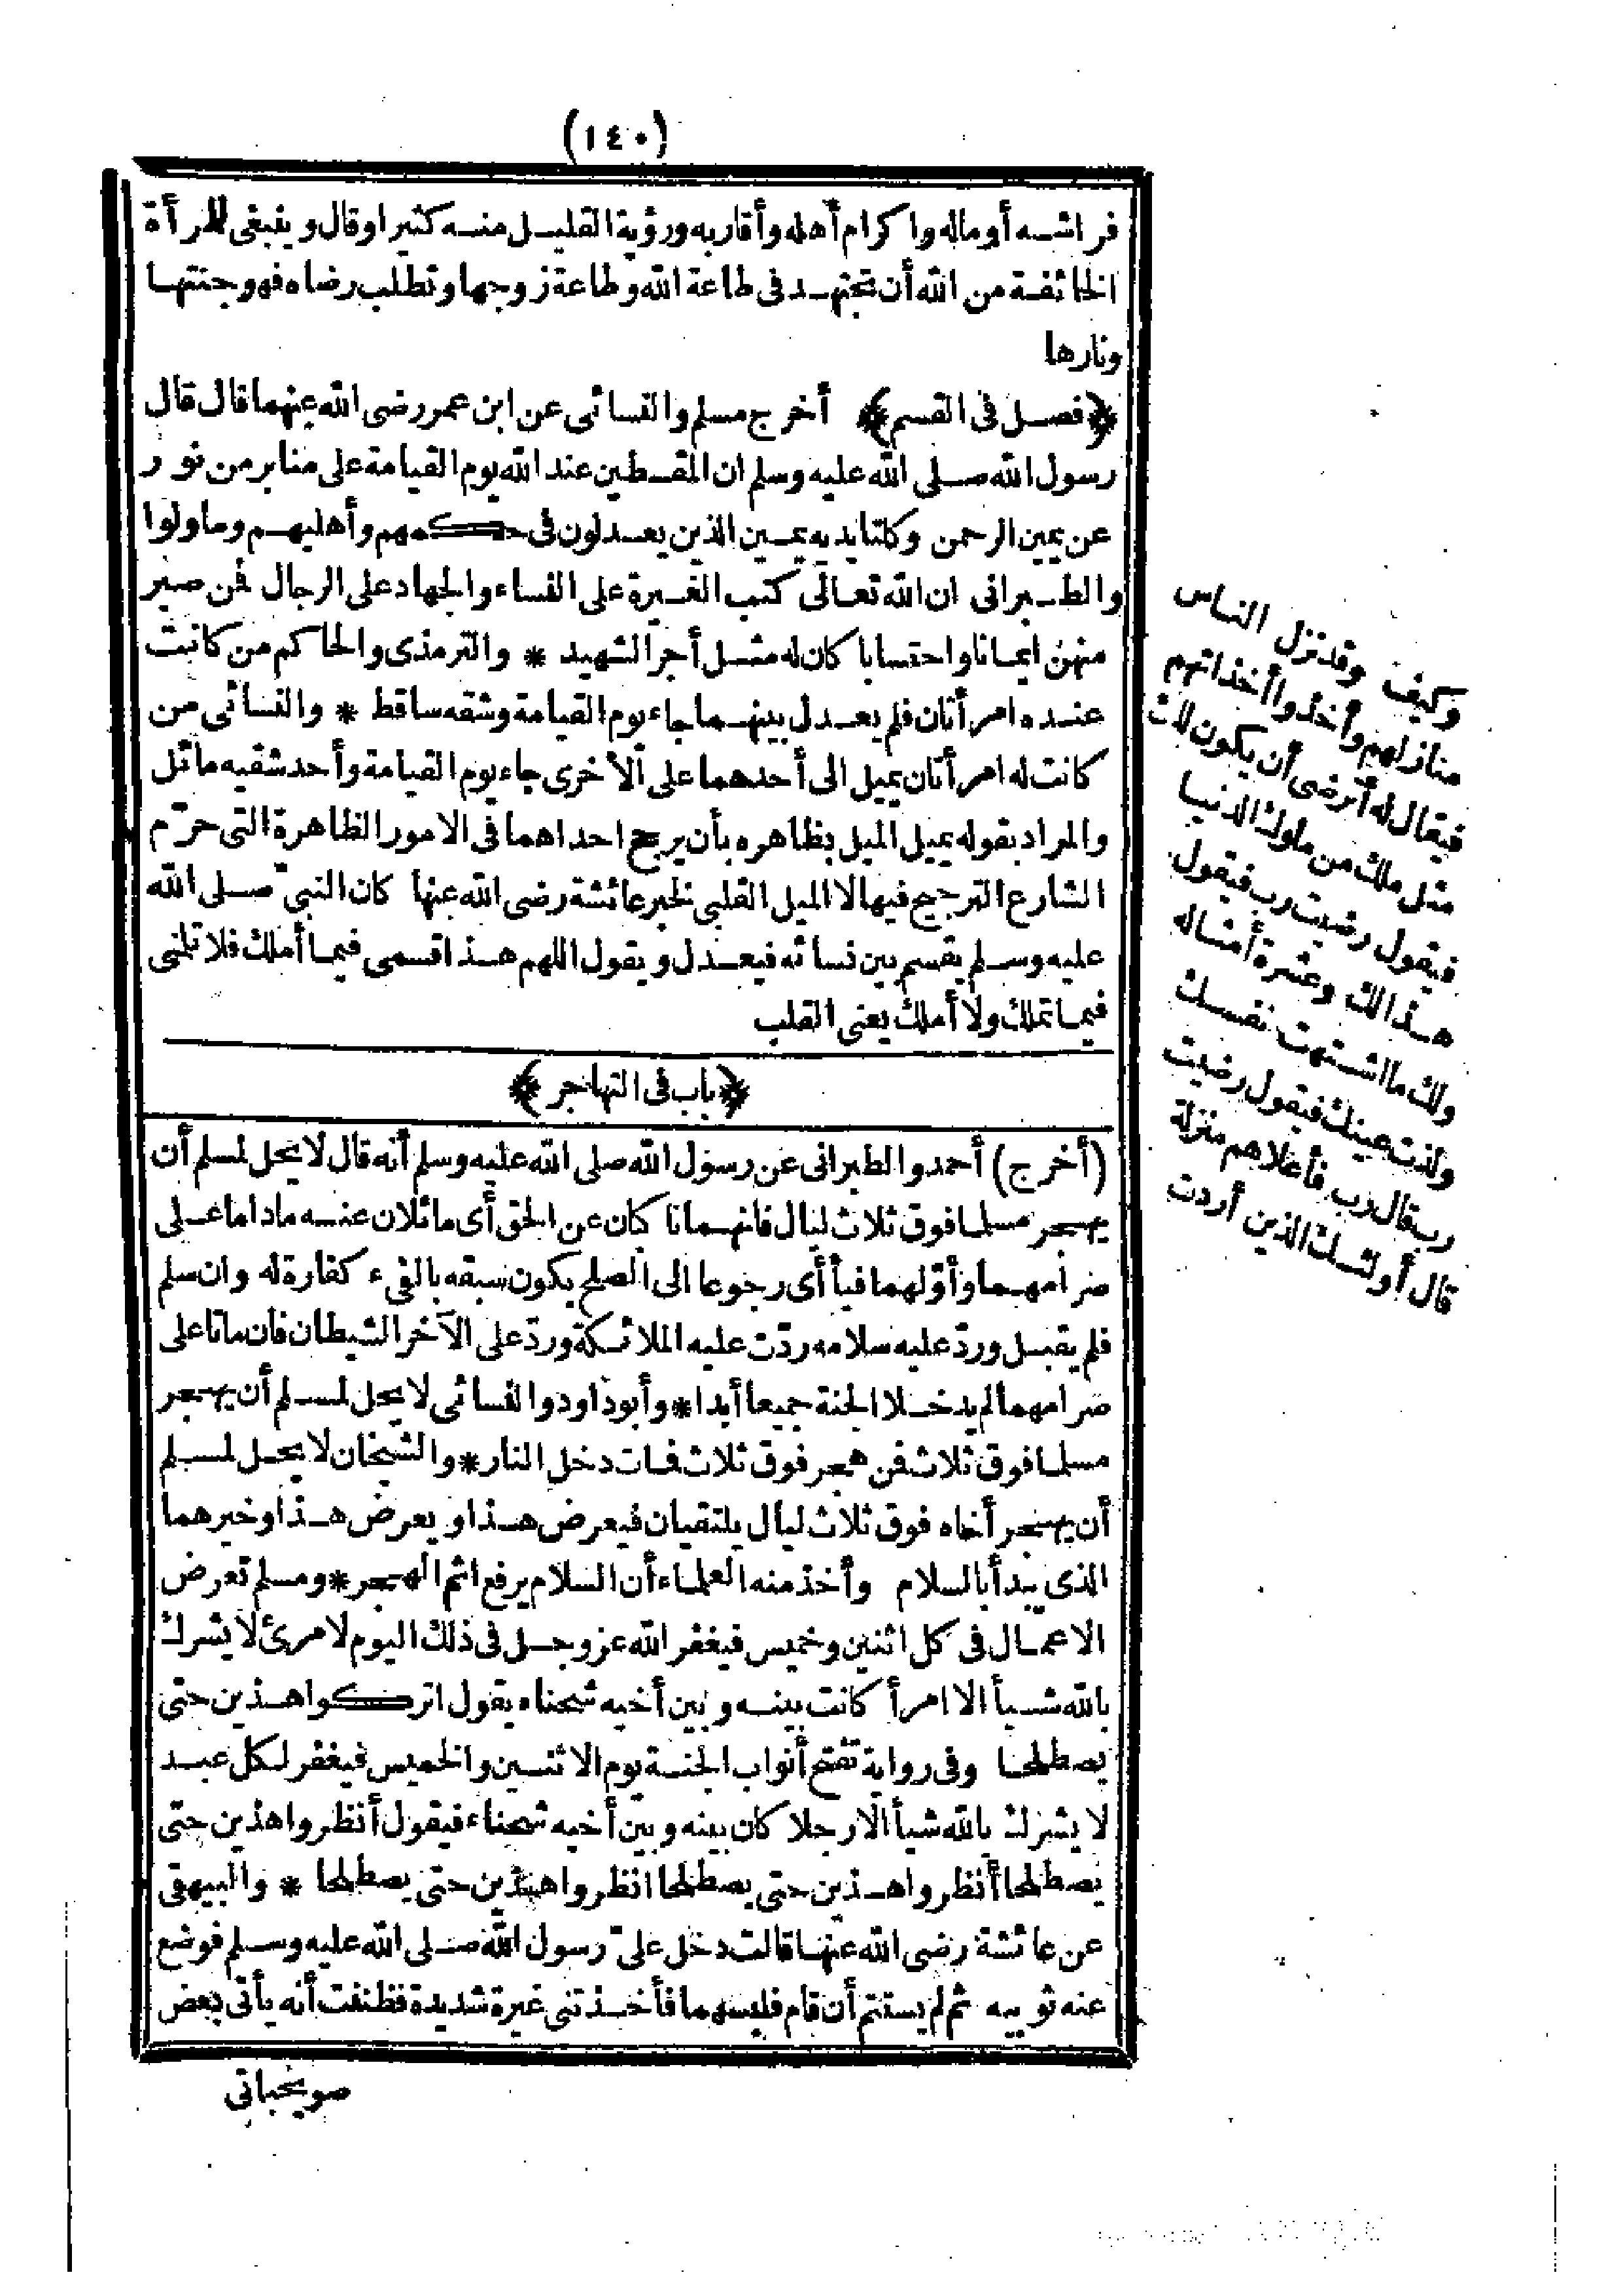 (١٤٠)
فراشه أو ماله واكرام أهله وأقاربه ورؤية القليل منه كثيرا وقال وينبغى للمرأة
الخائفة من الله أن تجتهد فى طاعة الله وطاعة زوجها وتطلب رضاه فهو جنتها
ونارها
﴿فصل فى القسم﴾ أخرج مسلم والنسائى عن ابن عمر رضى الله عنهما قال قال
رسول الله صلى الله عليه وسلم ان المقسطين عند الله يوم القيامة على منابر من نور
عن يمين الرحمن وكلتا يديه يمين الذين يعدلون فى حكمهم وأهليهم وما ولوا
والطبرانى ان الله تعالى كتب الغيرة على النساء والجهاد على الرجال فمن صبر
منهن ايمانا واحتسابا كان له مثل أجر الشهيد * والترمذى والحاكم من كانت
عنده امرأتان فلم يعدل بينهما جاء يوم القيامة وشقه ساقط * والنسائى من
كانت له امرأتان يميل الى أحدهما على الأخرى جاء يوم القيامة وأحد شقيه مائل
والمراد بقوله يميل الميل بظاهره بأن يرجح احداهما فى الامور الظاهرة التى حرّم
الشارع الترجيح فيها لا الميل القلبى لخبر عائشة رضى الله عنها كان النبىّ صلى الله
عليه وسلم يقسم بين نسائه فيعدل ويقول اللهم هذا قسمى فيما أملك فلا تلمنى
فيما تملك ولا أملك يعنى القلب
﴿باب فى التهاجر﴾
(أخرج) أحمد والطبرانى عن رسول الله صلى الله عليه وسلم أنه قال لا يحل لمسلم أن
يهجر مسلما فوق ثلاث ليال فانهما نا كان عن الحق أى مائلان عنه ماداما على
صرامهما وأوّلهما فيأ أى رجوعا الى الصلح يكون سبقه بالفىء كفارة له وان سلم
فلم يقبل وردّ عليه سلامه ردّت عليه الملائكة وردّ على الآخر الشيطان فان ماتا على
صرامهما لم يدخلا الجنة جميعا أبدا * وأبو داود والنسائى لا يحل لمسلم أن يهجر
مسلما فوق ثلاث فمن هجر فوق ثلاث فمات دخل النار * والشيخان لا يحل لمسلم
أن يهجر أخاه فوق ثلاث ليال يلتقيان فيعرض هذا ويعرض هذا وخيرهما
الذى يبدأ بالسلام وأخذ منه العلماء أن السلام يرفع اثم الهجر * ومسلم تعرض
الاعمال فى كل اثنين وخميس فيغفر الله عز وجل فى ذلك اليوم لامرئ لا يشرك
بالله شيأ الا امرأ كانت بينه وبين أخيه شحناء يقول اتركوا هذين حتى
يصطلحا وفى رواية تفتح أبواب الجنة يوم الاثنين والخميس فيغفر لكل عبد
لا يشرك بالله شيأ الا رجلا كان بينه وبين أخيه شحناء فيقول أنظروا هذين حتى
يصطلحا أنظروا هذين حتى يصطلحا انظروا هذين حتى يصطلحا * والبيهقى
عن عائشة رضى الله عنها قالت دخل علىّ رسول الله صلى الله عليه وسلم فوضع
عنه ثوبيه ثم لم يستتم أن قام فلبسهما فأخذتنى غيرة شديدة فظننت أنه يأتى بعض
صويحباتى
وكيف وقد نزل الناس
منازلهم وأخذوا أخذاتهم
فيقال له أترضى أن يكون لك
مثل ملك من ملوك الدنيا
فيقول رضيت رب فيقول
هذا لك وعشرة أمثاله
ولك ما اشتهت نفسك
ولذت عينك فيقول رضيت
رب قال رب فأعلاهم منزلة
قال أولئك الذين أردت